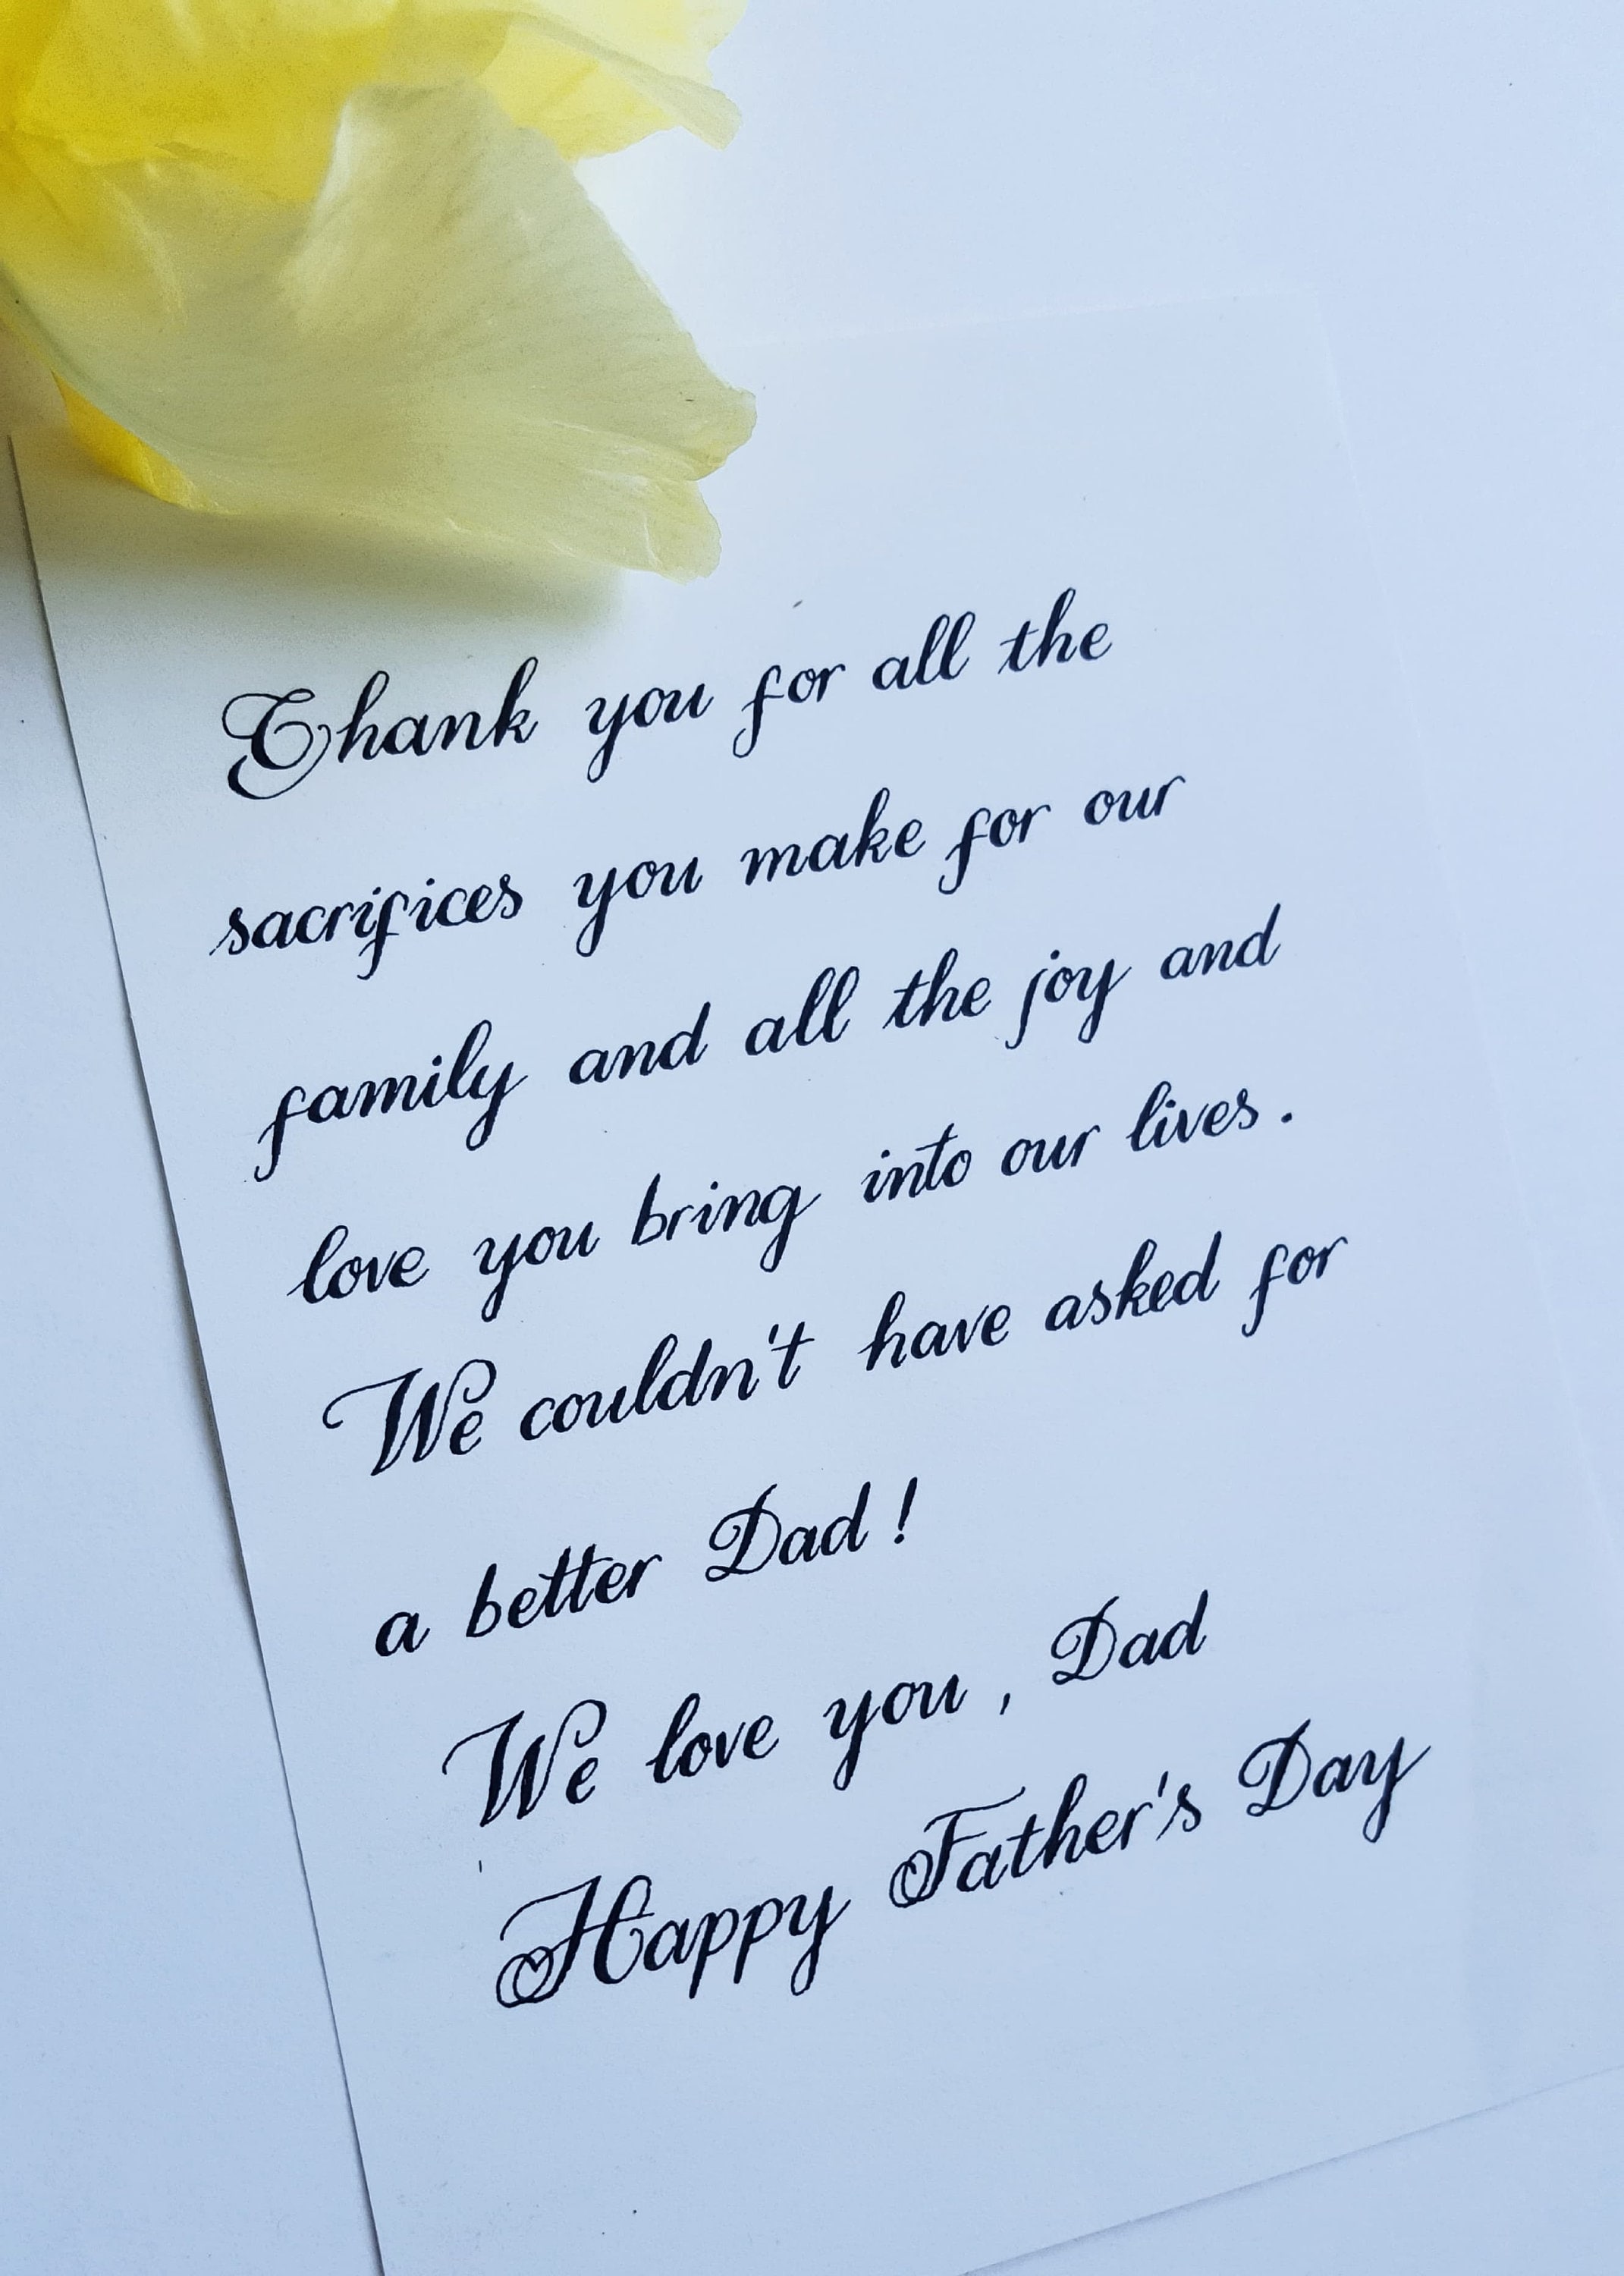 Thank you for all the
sacrifices you make for our
family and all the joy and
love you bring into our lives.
We couldn't have asked for
a better Dad!
We love you, Dad
Happy Father's Day